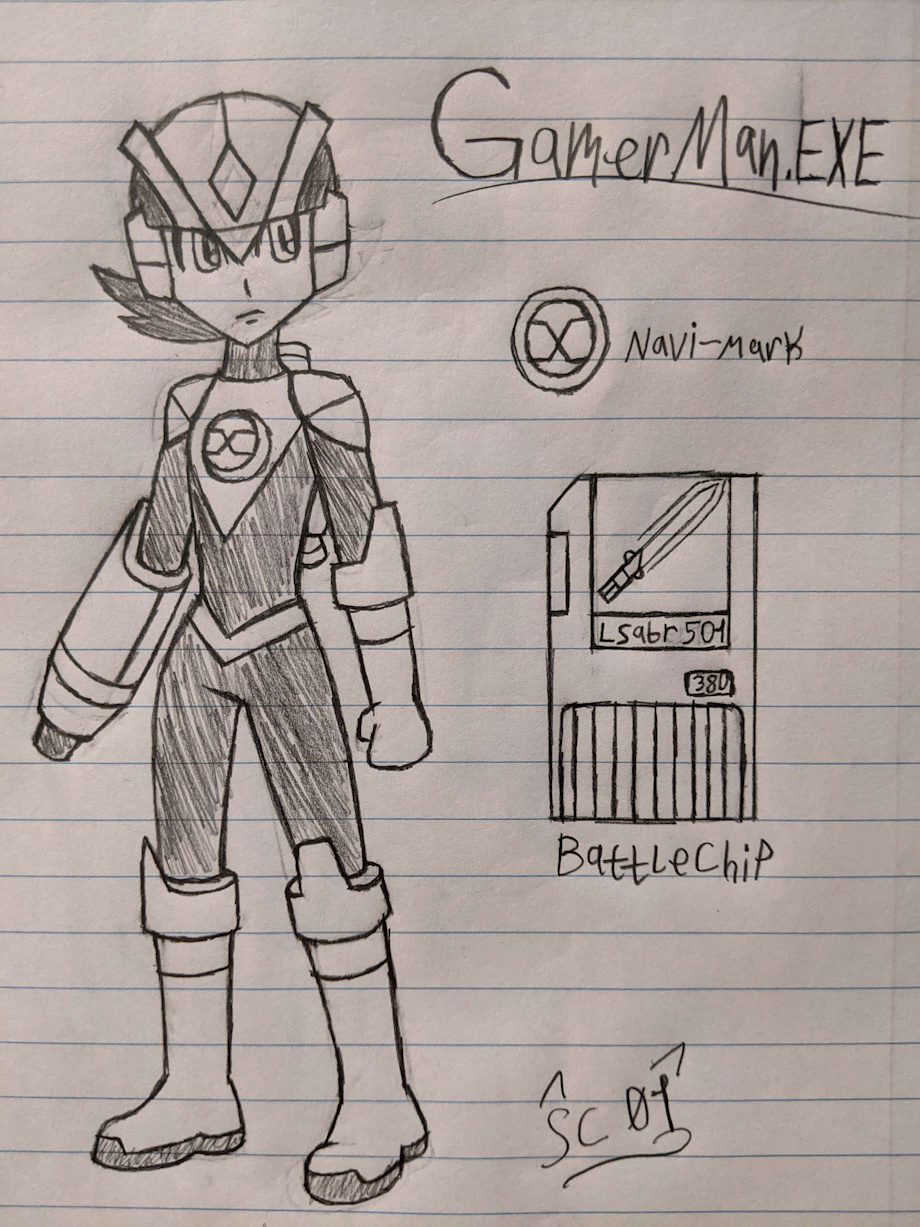 GamerMan.EXE
Navi-Mark
Lsabr501
380
BattleChip
SC 01